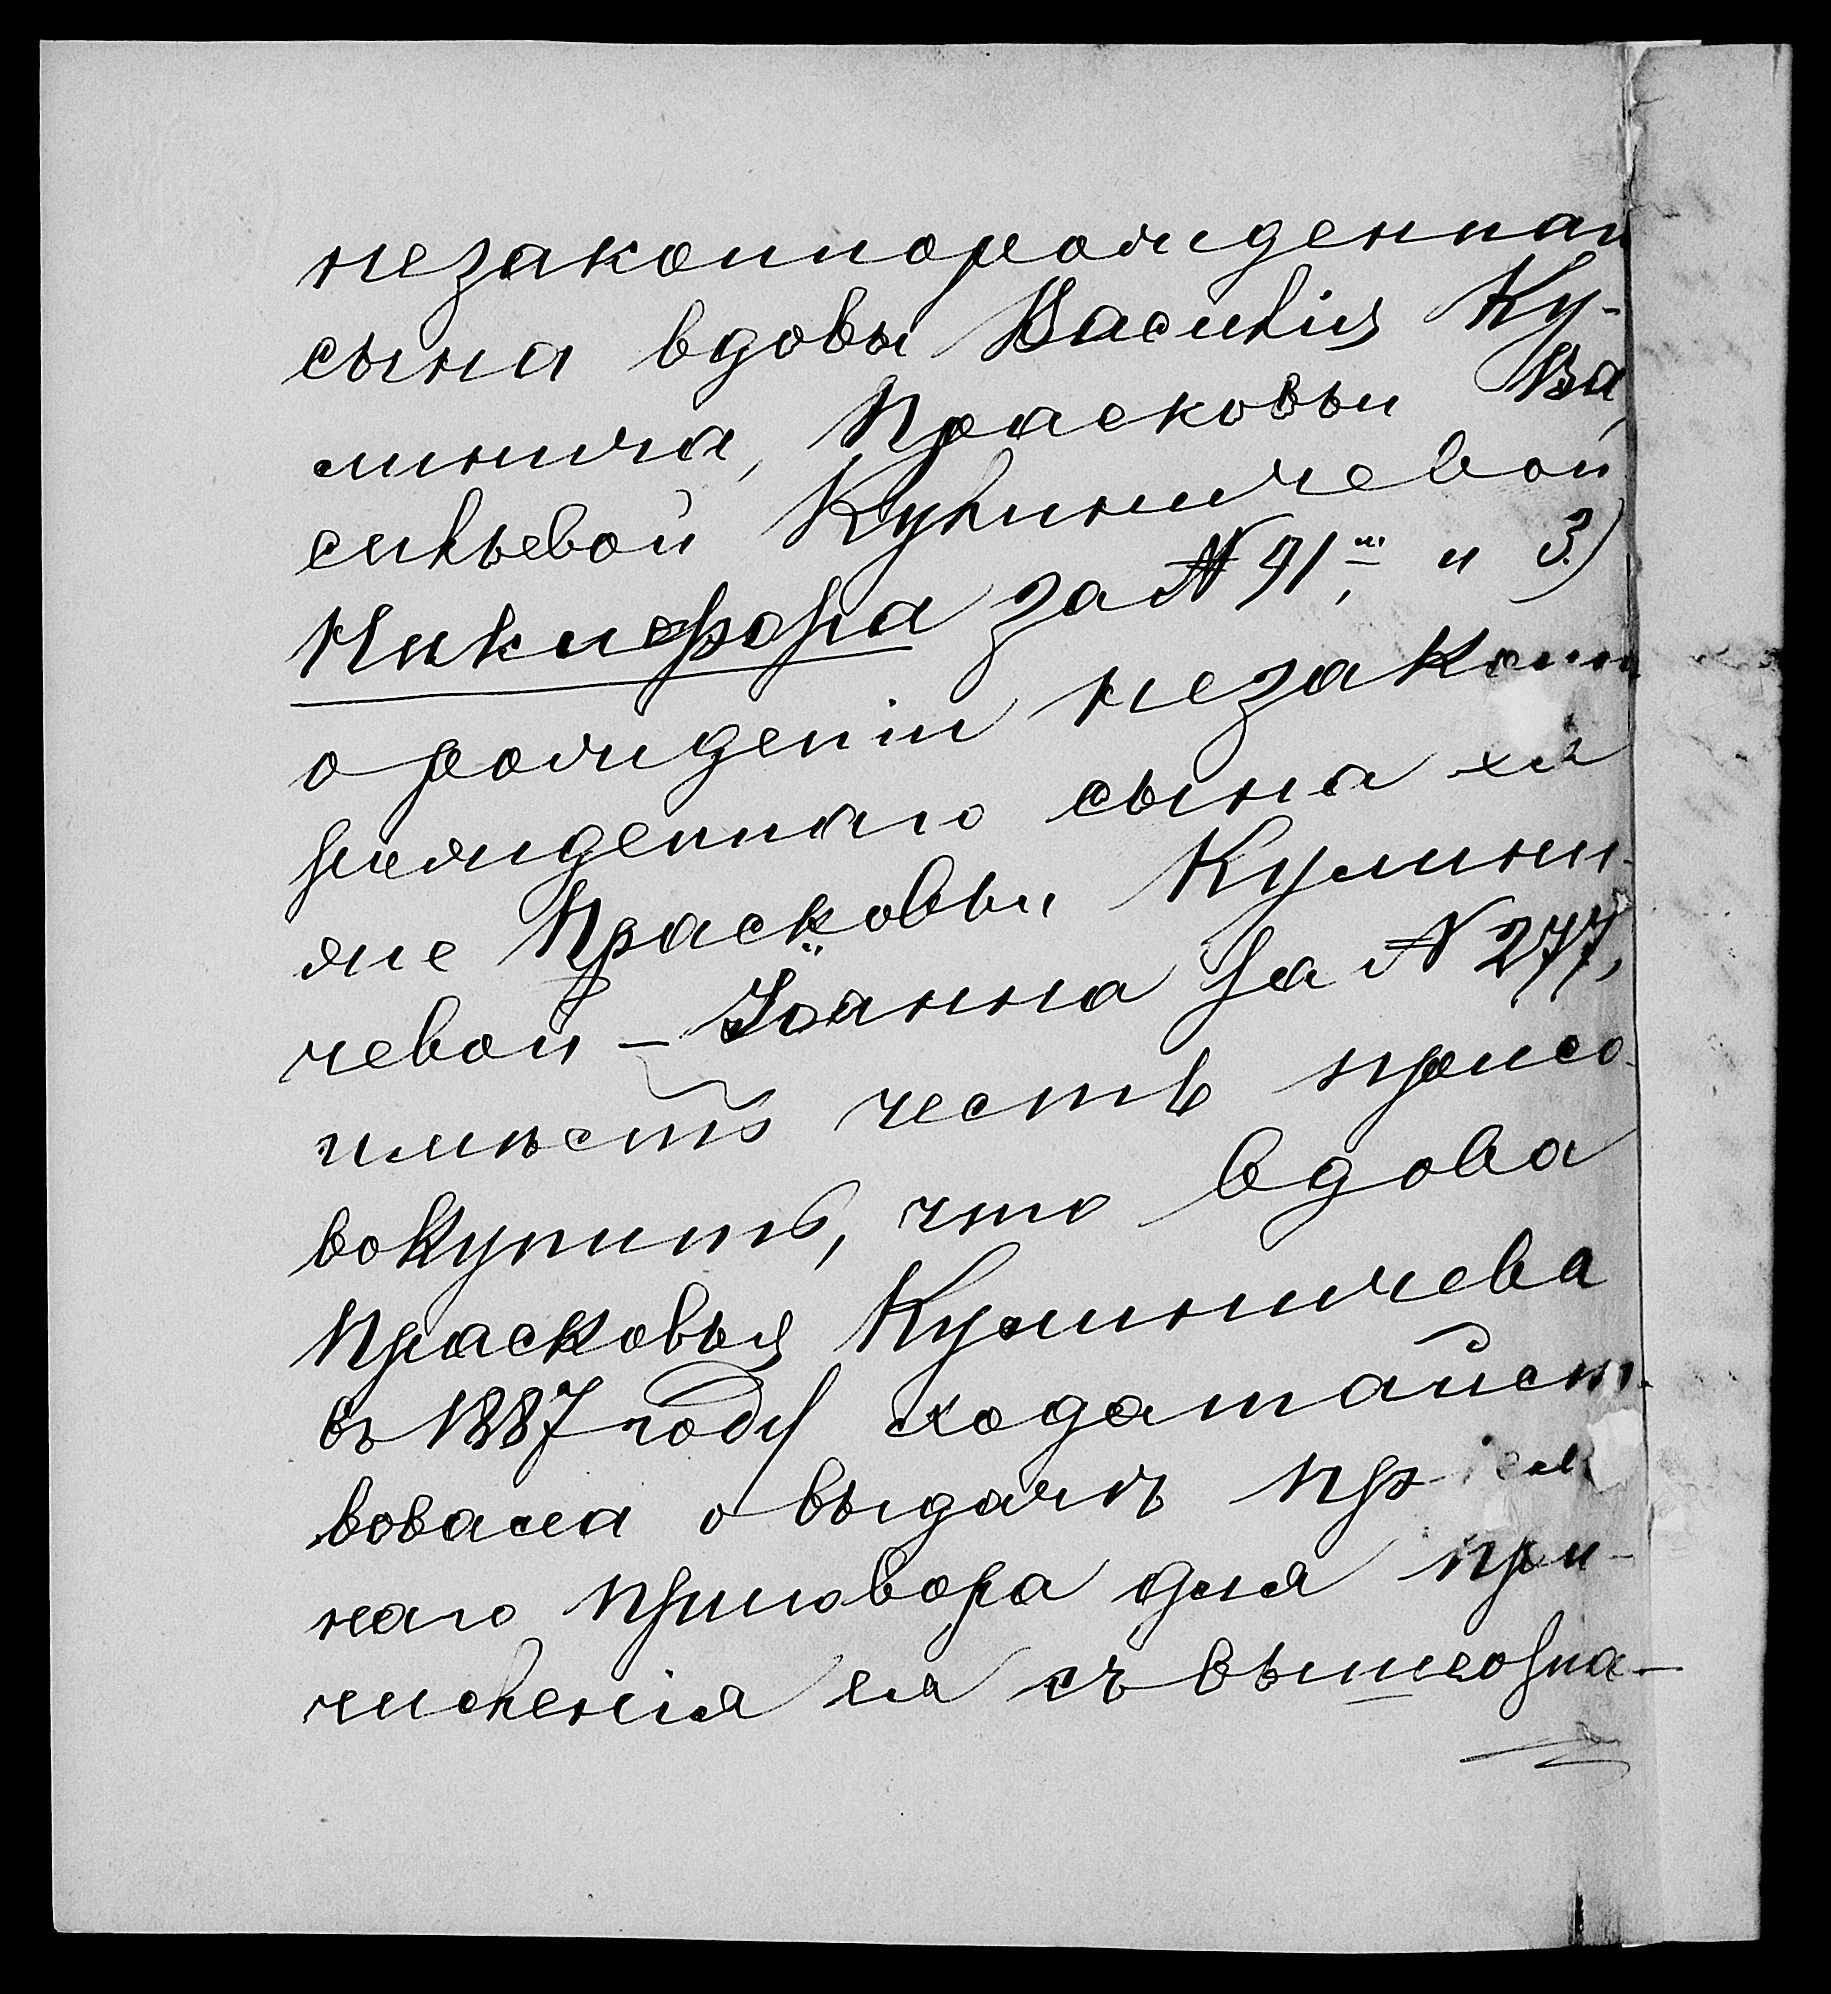 незаконнорожденнаго
сына вдовы Василія Ку-
линича, Прасковьи Ва
сильевой Кулиничевой
Никифора за № 71ᵐ, и 3)
о рожденіи незаконно
рожденнаго сына ея
же Прасковьи Кулини-
чевой – Іоанна за № 277,
имѣетъ честь присо-
вокупить, что вдова
Прасковья Кулиничева
въ 1887 году ходатайст-
вовала о выдачѣ пріем
наго приговора для при-
численія ея съ вышеозна-